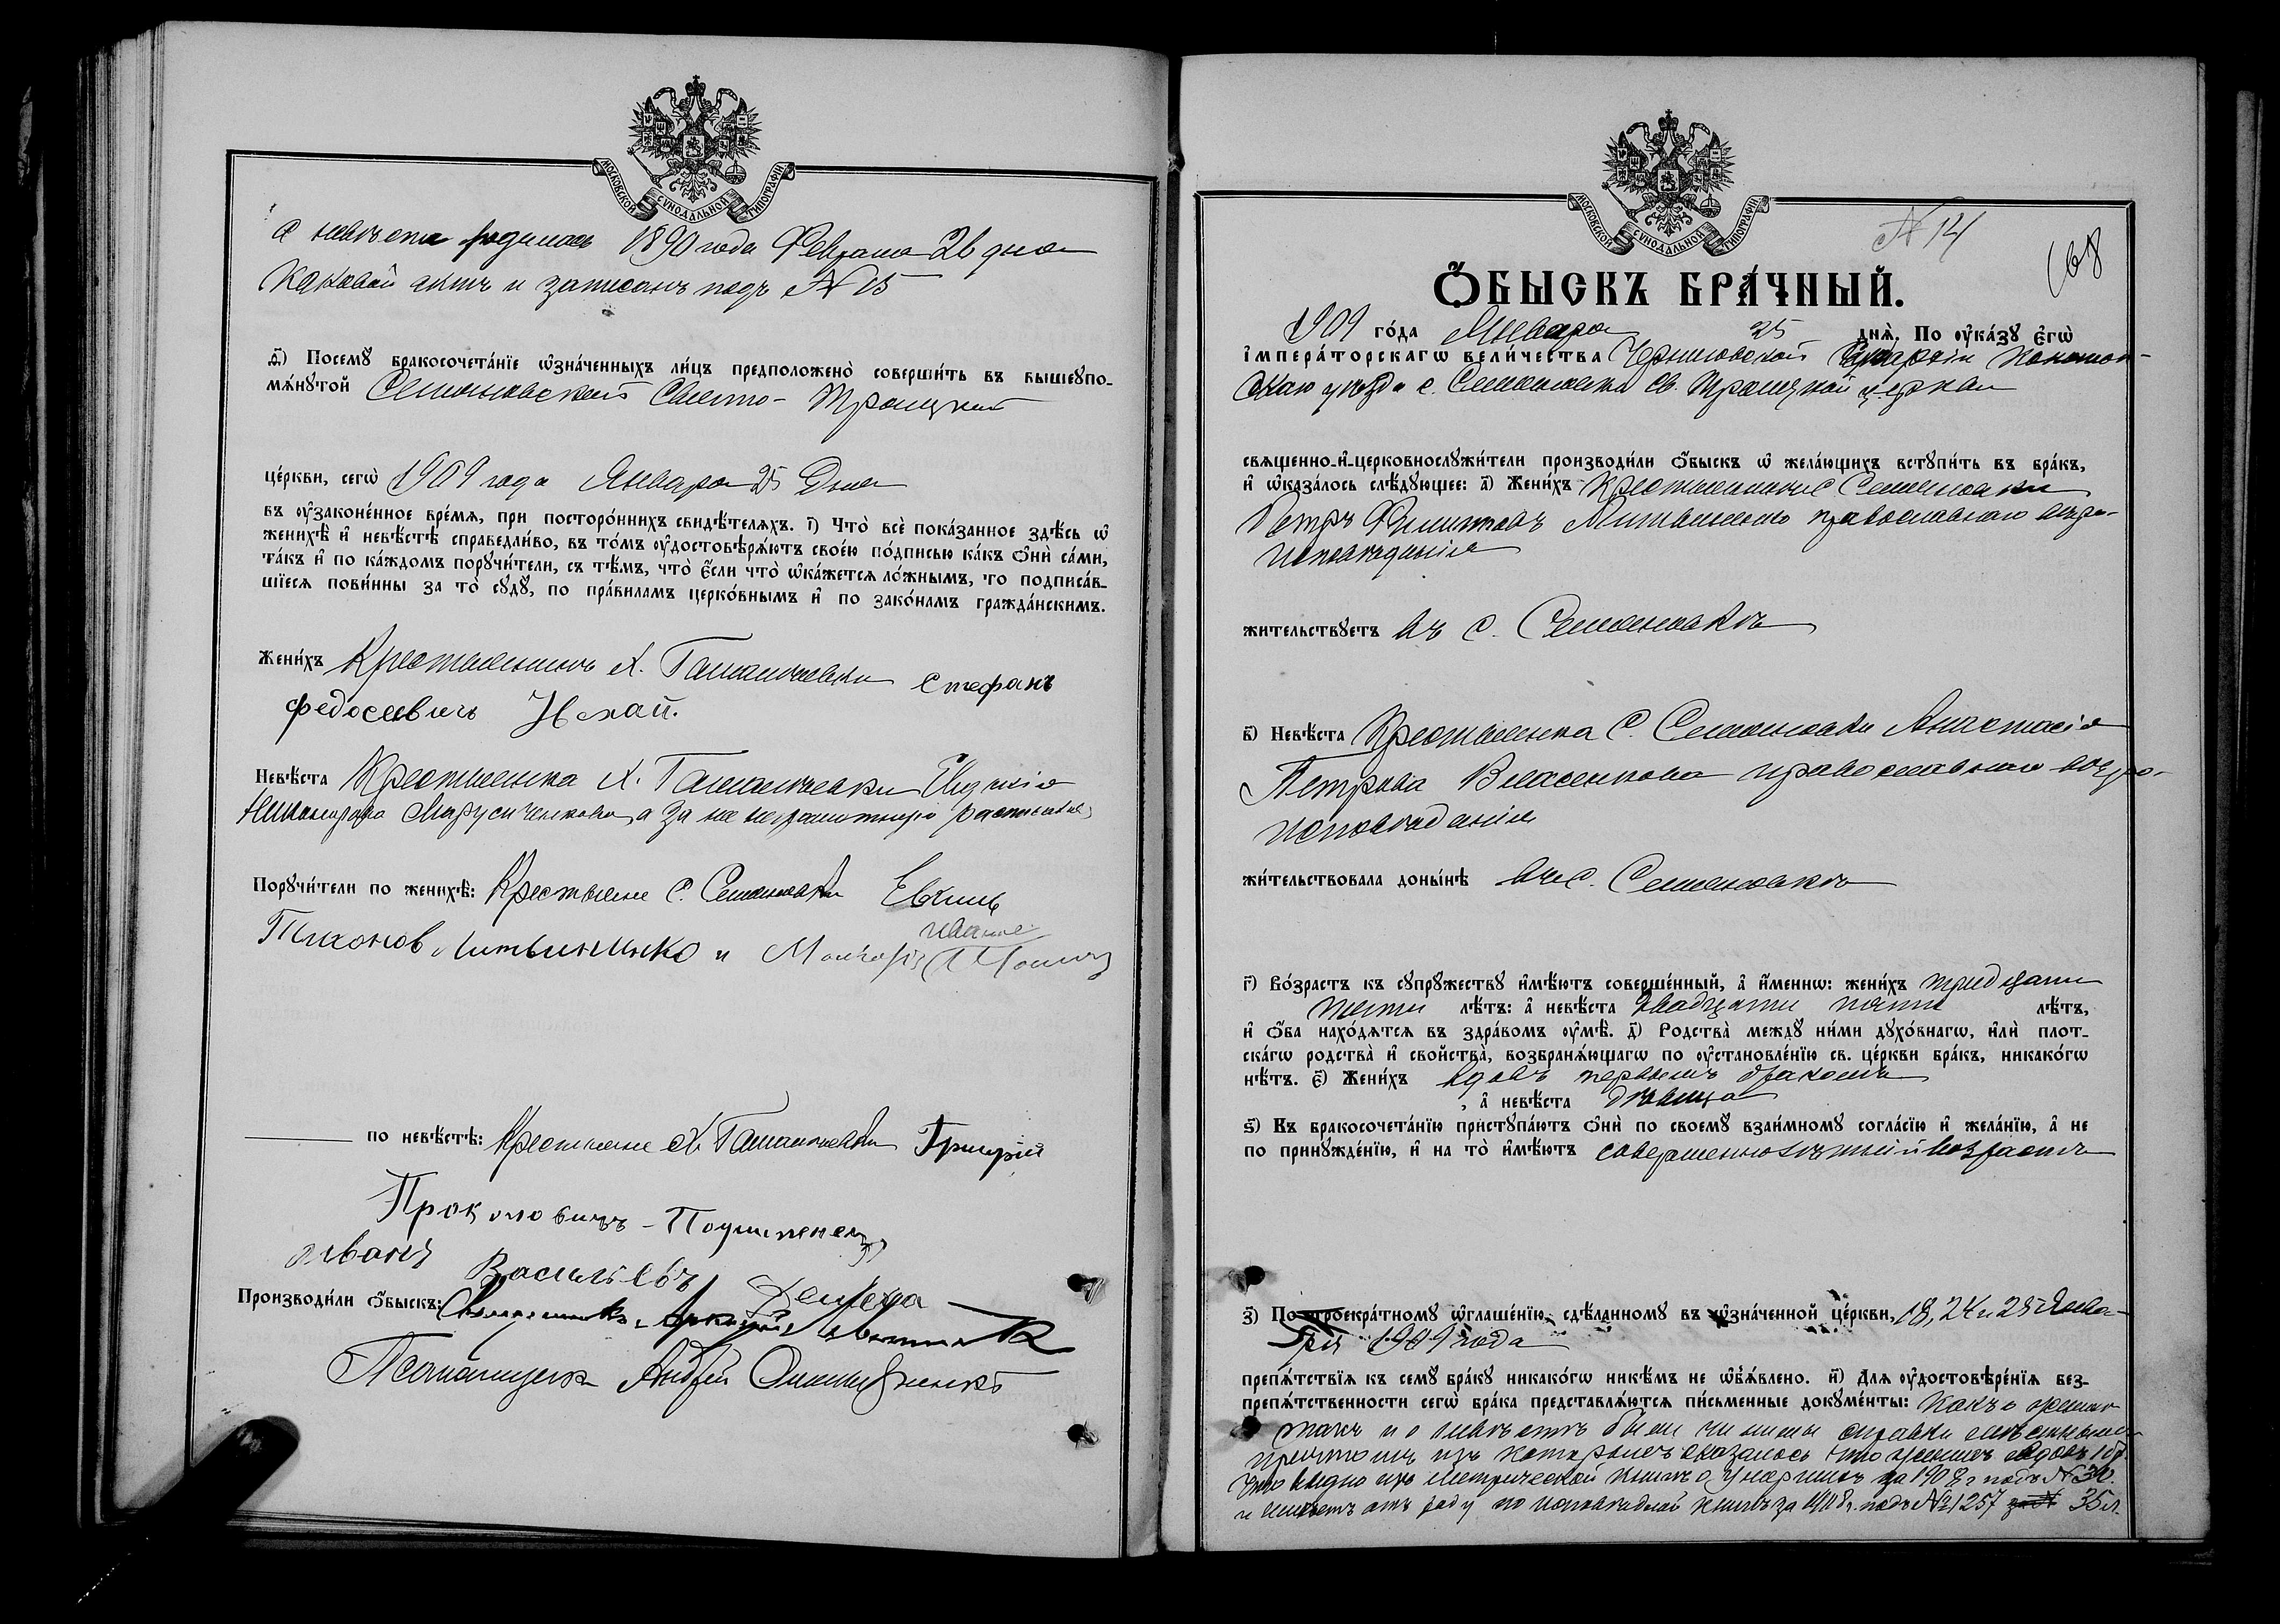 МОСКОВСКОЙ СѴНОДАЛЬНОЙ ТИПОГРАФІИ
а невѣста родилась 1890 года Февраля 26 дня
каковой актъ и записанъ подъ № 15
ѳ҃) Посемꙋ бракосочета́нїе ѡ҆зна́ченныхъ ли́цъ предположено̀ соверши́ть въ вышеꙋпо-
мѧ́нꙋтой Семеновской Свято-Троицкой
це́ркви, сегѡ̀ 1909 года Января 25 Дня
въ ᲂу҆зако́ненное вре́мѧ, при посторо́ннихъ свидѣ́телѧхъ. і҃) Что̀ всѐ пока́занное здѣ́сь ѡ҆
женихѣ̀ и҆ невѣ́стѣ справедли́во, въ то́мъ ᲂу҆достовѣрѧ́ютъ свое́ю по́дписью ка́къ ѻ҆нѝ са́ми,
та́къ и҆ по ка́ждомъ порꙋчи́тели, съ тѣ́мъ, что̀ є҆́сли что̀ ѡ҆ка́жетсѧ ло́жнымъ, то подписа́в-
шїесѧ пови́нны за то̀ сꙋдꙋ̀, по пра́виламъ церко́внымъ и҆ по зако́намъ гражда́нскимъ.
Жени́хъ Крестьянинъ х. Стефанъ
Федосеевичъ
Невѣ́ста Крестьянка х. Евдокія
а за не неграмотную расписался
Порꙋчи́тели по женихѣ̀: Крестьяне с. Семеновки
Тихонов Литвиненко и
по невѣ́стѣ: Крестьяне х. Григорій
Иванъ Васильевъ
Производи́ли ѻ҆́быскъ: Священникъ
Псаломщикъ Андрей
МОСКОВСКОЙ СѴНОДАЛЬНОЙ ТИПОГРАФІИ
№ 14
168
Ѻ҆́БЫСКЪ БРА́ЧНЫЙ.
1909 го́да Января 25 днѧ̀. По ᲂу҆ка́зꙋ є҆гѡ̀
і҆мпера́торскагѡ вели́чества Черниговской Епархіи Конотоп-
скаго уѣзда с. Семеновки Св. Троицкой церкви
свѧщенно-и҆-церковнослꙋжи́тели производи́ли ѻ҆́быскъ ѡ҆ жела́ющихъ встꙋпи́ть въ бра́къ,
и҆ ѡ҆каза́лось слѣ́дꙋющее: а҃) Жени́хъ Крестьянинъ с Семеновки
Петръ Филиповъ Литвиненко православнаго вѣро-
исповѣданія
жи́тельствꙋетъ въ с. Семеновкѣ
в҃) Невѣ́ста Крестьянка с. Семеновки Анастасія
Петрова Власенкова православнаго вѣро-
исповѣданія
жи́тельствовала доны́нѣ въ с. Семеновкѣ
г҃) Во́зрастъ къ сꙋпрꙋ́жествꙋ и҆мѣ́ютъ соверше́нный, а҆ и҆́меннѡ: жени́хъ тридцати
лѣ́тъ: а҆ невѣ́ста двадцати пяти лѣ́тъ,
и҆ ѻ҆́ба нахо́дѧтсѧ въ здра́вомъ ᲂу҆мѣ̀. д҃) Родства̀ междꙋ̀ ни́ми дꙋхо́внагѡ, и҆лѝ плот-
ска́гѡ родства̀ и҆ сво́йства̀, возбранѧ́ющагѡ по ᲂу҆становле́нїю св. це́ркви бра́къ, никако́гѡ
нѣ́тъ. є҃) Жени́хъ вдовъ первымъ бракомъ
, а҆ невѣ́ста дѣвица
ѕ҃) Къ бракосочета́нїю пристꙋпа́ютъ ѻ҆нѝ по своемꙋ̀ взаи́мномꙋ согла́сїю и҆ жела́нїю, а҆ не
по принꙋжде́нїю, и҆ на то̀ и҆мѣ́ютъ совершеннолѣтній возрастъ
з҃) По троекра́тномꙋ ѡ҆глаше́нїю, сдѣ́ланномꙋ въ ѡ҆зна́ченной це́ркви, 18, 24 и 25 Янва-
ря 1909 года
препѧ́тствїѧ къ семꙋ̀ бра́кꙋ никако́гѡ никѣ́мъ не ѡ҆б̾ѧ́влено. и҃) Длѧ ᲂу҆достовѣре́нїѧ без-
препѧ́тственности сегѡ̀ бра́ка представлѧ́ютсѧ пи́сьменные докꙋме́нты: Какъ о женихѣ
такъ и о невѣстѣ были чинимы справки мѣстнымъ
причтомъ изъ которыхъ оказалось что женихъ вдовъ
что видно изъ Метрической книги о умершихъ за 1908 г подъ № 30
и невѣстѣ отъ роду по исповѣдной книгѣ за 1908 г. подъ № 1257 35 л.